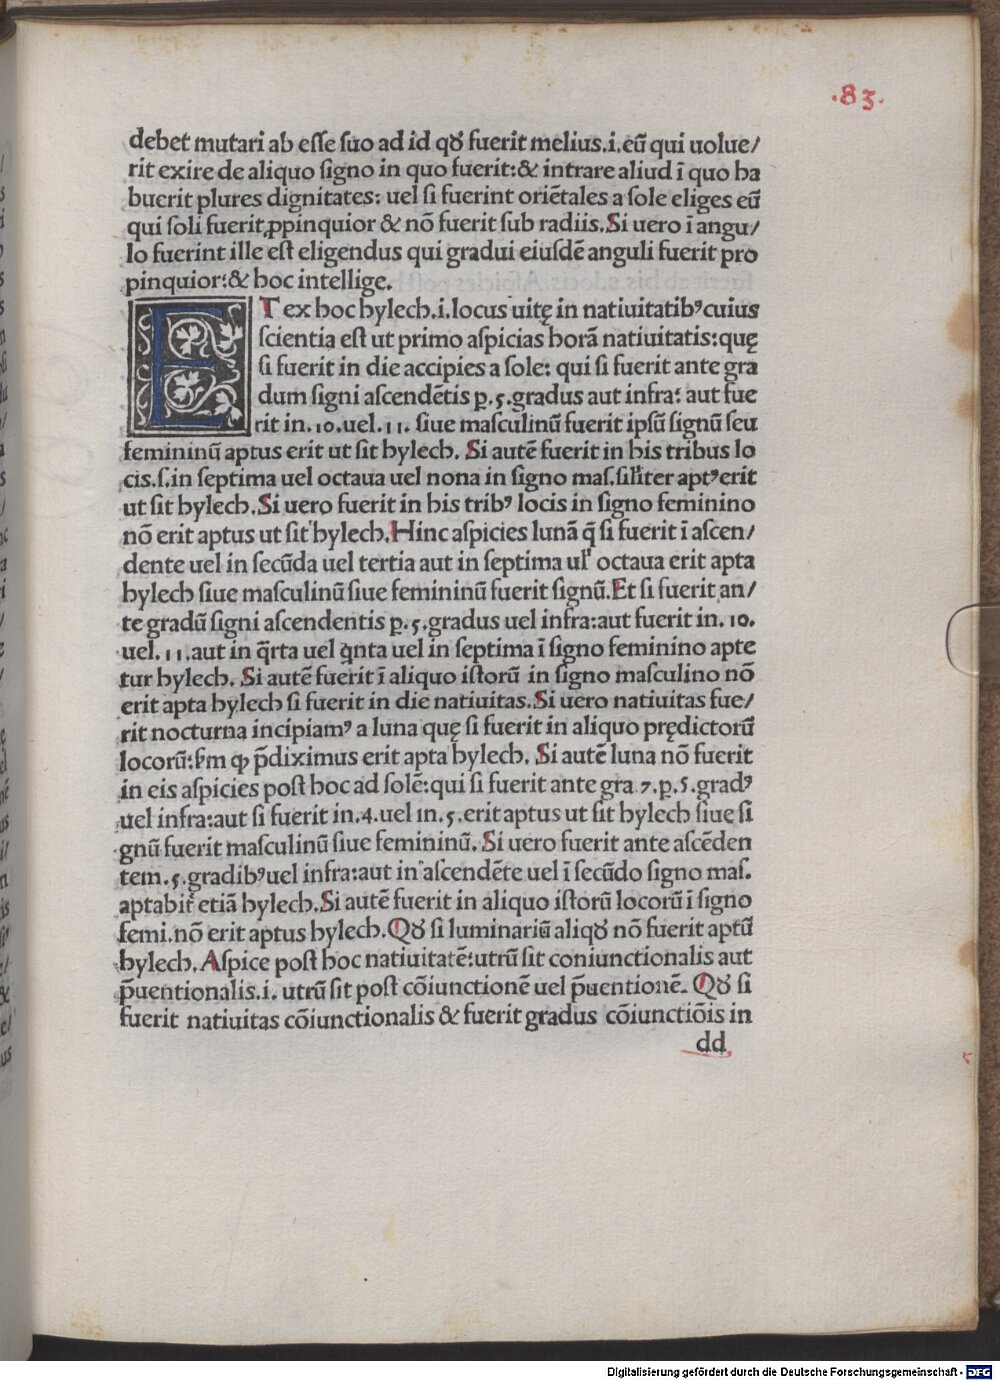 .83.
debet mutari ab esse suo ad id qđ fuerit melius.i.eū qui uolue/
rit exire de aliquo signo in quo fuerit:& intrare aliud ī quo ha
buerit plures dignitates: uel si fuerint oriētales a sole eliges eū
qui soli fuerit ꝓpinquior & nō fuerit sub radiis.Si uero ī angu/
lo fuerint ille est eligendus qui gradui eiusdē anguli fuerit pro
pinquior:& hoc intellige.
ET ex hoc hylech.i.locus uitę in natiuitatibꝰ cuius
scientia est ut primo aspicias horā natiuitatis:quę
si fuerit in die accipies a sole: qui si fuerit ante gra
dum signi ascendētis p.5.gradus aut infra: aut fue
rit in.10.uel.11. siue masculinū fuerit ipsū signū seu
femininū aptus erit ut sit hylech. Si autē fuerit in his tribus lo
cis.s.in septima uel octaua uel nona in signo mas.siłiter aptꝰ erit
ut sit hylech.Si uero fuerit in his tribꝰ locis in signo feminino
nō erit aptus ut sit hylech.Hinc aspicies lunā q̄ si fuerit ī ascen/
dente uel in secūda uel tertia aut in septima uł octaua erit apta
hylech siue masculinū siue femininū fuerit signū.Et si fuerit an/
te gradū signi ascendentis p.5.gradus uel infra:aut fuerit in.10.
uel.11.aut in q̄rta uel qnta uel in septima ī signo feminino apte
tur hylech. Si autē fuerit ī aliquo istorū in signo masculino nō
erit apta hylech si fuerit in die natiuitas.Si uero natiuitas fue/
rit nocturna incipiamꝰ a luna quę si fuerit in aliquo prędictorū
locorū:fm ꝙ p̄diximus erit apta hylech. Si autē luna nō fuerit
in eis aspicies post hoc ad solē:qui si fuerit ante gra.7.p.5.gradꝰ
uel infra:aut si fuerit in.4.uel in.5.erit aptus ut sit hylech siue si
gnū fuerit masculinū siue femininū. Si uero fuerit ante ascēden
tem.5.gradibꝰ uel infra:aut in ascendēte uel ī secūdo signo mas.
aptabit̄ etiā hylech.Si autē fuerit in aliquo istorū locorū ī signo
femi.nō erit aptus hylech.Qđ si luminariū aliqđ nō fuerit aptū
hylech.Aspice post hoc natiuitatē:utrū sit coniunctionalis aut
p̄uentionalis.i. utrū sit post cōiunctionē uel p̄uentionē. Qđ si
fuerit natiuitas cōiunctionalis & fuerit gradus cōiunctiōis in
dd
Digitalisierung gefördert durch die Deutsche Forschungsgemeinschaft - DFG